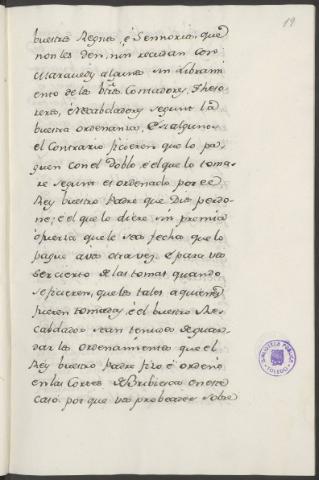 19
buestros Regnos, é Sennorios, que
non les den, nin recudan con
Maravedis algunos sin Librami
ento de los bros Contadores, Theso
reros, é Recabdadores segunt la
buestra ordenanza, é si algunos
el Contrario ficieren que lo pa
guen con el doblo, é el que lo toma
re segunt es ordenado por el
Rey buestro Padre que Dios perdo
ne; é el que lo diere sin premia
ó fuerza que le sea fecha que lo
pague a vos otra vez, é para vos
ser cierto de las tomas quando
se ficieren, que los tales a quienes
fueren tomados, é el buestro Re
cabdador sean tenudos de guar
dar los ordenamientos que el
Rey buestro Padre fizo é ordenó
en las Cortes de Bribiesca en este
caso, por que vos probeades sobre
BIBLIOTECA PUBLICA
TOLEDO